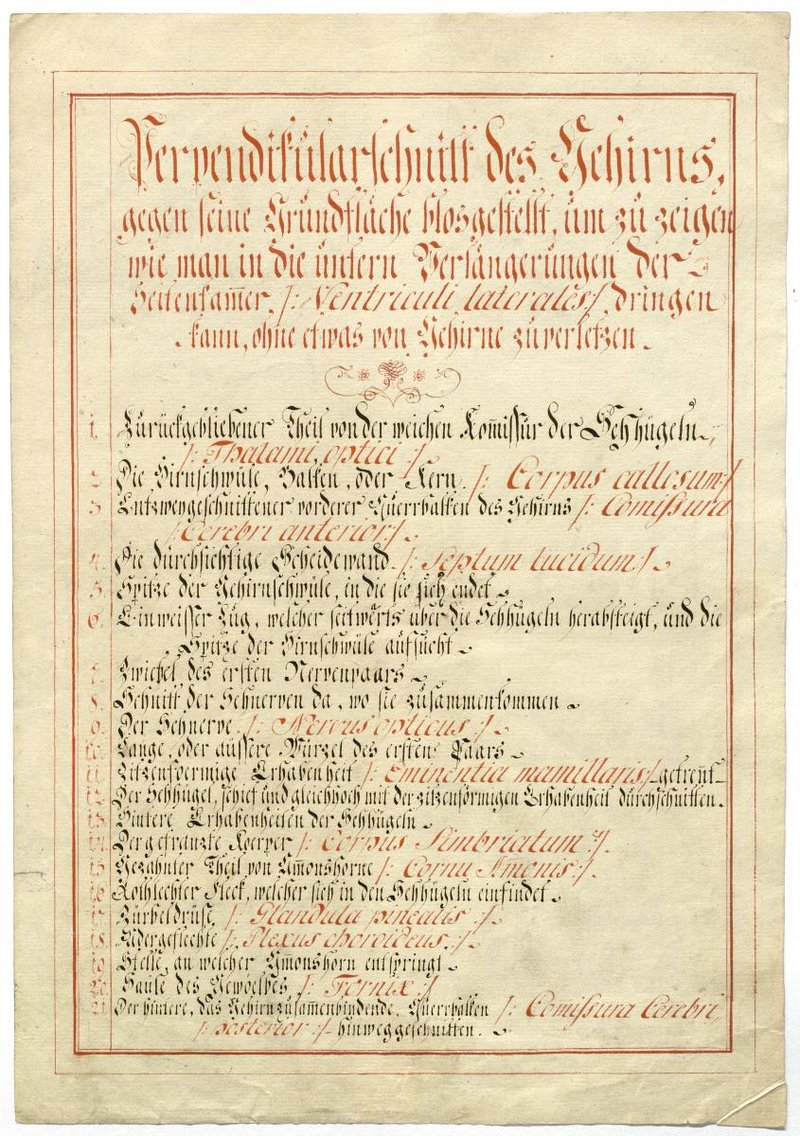 Perpendikularschnitt des Gehirns,
gegen seine Grundfläche blosgestellt, um zu zeigen
wie man in die untern Verlängerungen der
Seitenkam̅er /: Ventriculi laterales :/ dringen
kann, ohne etwas von Gehirne zu verletzen.
1. Zurückgebliebener Theil von der weichen Kom̅issur der Sehhügeln,
/: Thalami optici :/
2. Die Hirnschwüle, Balken, oder Kern /: Corpus callosum :/
3. Entzweygeschnittener vorderer Querrbalken des Gehirns /: Comissura
/: Cerebri anterior :/
4. Die durchsichtige Scheidewand /: Septum lucidum :/
5. Spitze der Gehirnschwüle, in die sie sich endet
6. Ein weisser Zug, welcher seitwärts über die Sehhügeln herabsteigt, und die
Spitze der Hirnschwüle aufsucht
7. Zwiebel des ersten Nervenpaars
8. Schnitt der Sehnerven da, wo sie zusammenkommen
9. Der Sehnerve /: Nervus opticus :/
10. Lange, oder äussere Wurzel des ersten Paars
11. Zitzenfoermige Erhabenheit /: Eminentia mamillaris :/ getren̅t
12. Der Sehhügel, schief und gleichhoch mit der zitzenförmigen Erhabenheit durchschnitten.
13. Hintere Erhabenheiten der Sehhügeln
14. Der gefranzte Koerper /: Corpus Fimbriatum :/
15. Gezahnter Theil von Am̅onshorne /: Cornu Amonis :/
16. Rothlechter Fleck, welcher sich in den Sehhügeln einfindet
17. Zürbeldrüse /: Glandula pinealis :/
18. Adergeflechte /: Plexus choroideus :/
19. Stelle, an welcher Am̅onshorn entspringt
20. Säule des Gewoelbes /: Fornix :/
21. Der hintere, das Gehirn zusam̅enbindende, Querrbalken /: Comissura Cerebri
/: posterior :/ hinweggeschnitten.